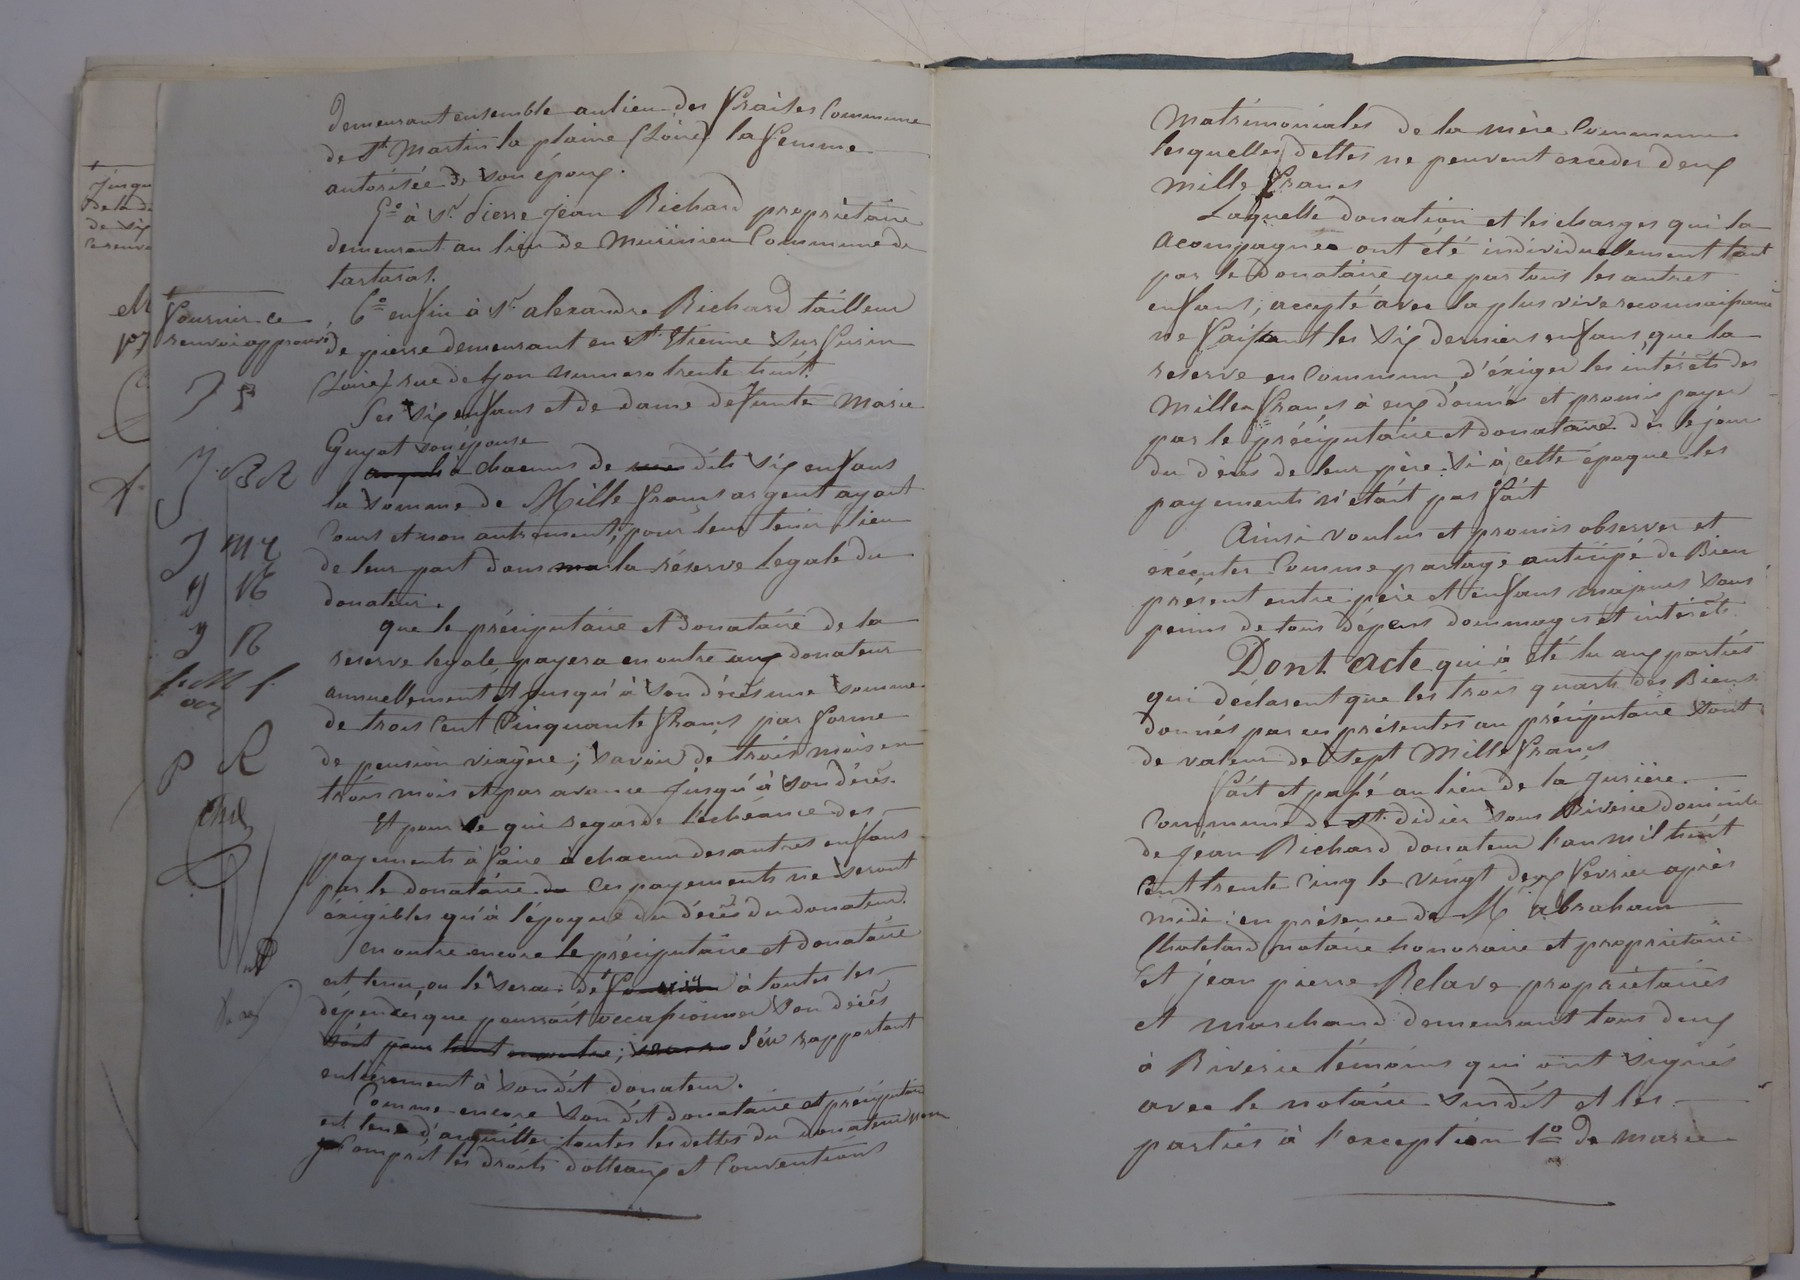 demeurant ensemble au lieu des Fraites Commune
de St Martin la plaine (Loire) la femme
autorisée de son époux.
5o à Sr. Pierre Jean Richard propriétaire
demeurant au lieu de Commune de
tartaras.
6o enfin à Sr. alexandre Richard tailleur
de pierre demeurant en St. Etienne Sur furin
(Loire) rue de lyon numero trente huit.
Ses Six enfans et de dame defunte Marie
Guyot son épouse
à chacuns de dits Six enfans
la Somme de Mille francs argent ayant
Cours et non autrement, pour leur tenir lieu
de leur part dans la réserve legale du
donateur.
que le préciputaire et donataire de la
reserve legale payera en outre aux donateur
annuellement et jusqu'à Son décès une Somme
de trois Cent Cinquante francs par forme
de pension viagere; Savoir de trois mois en
trois mois et par avance jusqu'à Son décès.
Et pour Ce qui regarde l'echéance des
payements à faire à chacun des autres enfans
par le donataire Ces payements ne Seront
éxigibles qu'à l'époque du décès du donateur.
en outre encore le préciputaire et donataire
est tenu, ou le Sera de à toutes les
dépences que pourrait occassionner Son décès
soit pour S'en rapportant
entièrement à Son dit donateur.
Comme encore Son dit donataire et préciputaire
est tenu d'acquitter toutes les dettes du donateur
Compris les droits dotteaux et Conventions
fournir Ce
renvoi approuvé
J P
J. B R
J M R
J R
P R
Matrimoniales de la mère Commune
lesquelles dettes ne peuvent exceder deux
Mille francs
Laquelle donation et les charges qui la
acompagnes ont été individuellement tant
par le donataire que par tous les autres
enfans, accepté avec la plus vive reconnaissance
ne faisant les Six derniers enfans que la
reserve en Commun d'éxiger les intérêts des
Milles francs à eux donné et promis payer
par le préciputaire et donataire dès le jour
du décès de leur père Si à cette époque les
payements n'etait pas fait
Ainsi voulus et promis observer et
exécuter Comme partage anticipé de Bien
présent entre père et enfans majeurs Sous
peines de tous dépens dommages et intérêts
Dont acte qui a été lu aux parties
qui déclarent que les trois quarts des Biens
donnés par ces présentes au préciputaire Sont
de valeur de Sept Mille francs
fait et passé au lieu de la jurière
Commune de St. didier Sous Riverie domicile
de Jean Richard donateur l'an mil huit
Cent trente Cinq le vingt deux fevrier après
midi; en présence de Mr abraham
Chatelard notaire honoraire et proprietaire
Et jean pierre Relave propriétaires
et marchand demeurant tous deux
à Riverie témoins qui ont signés
avec le notaire Susdit et les
parties à l'exception 1o de marie